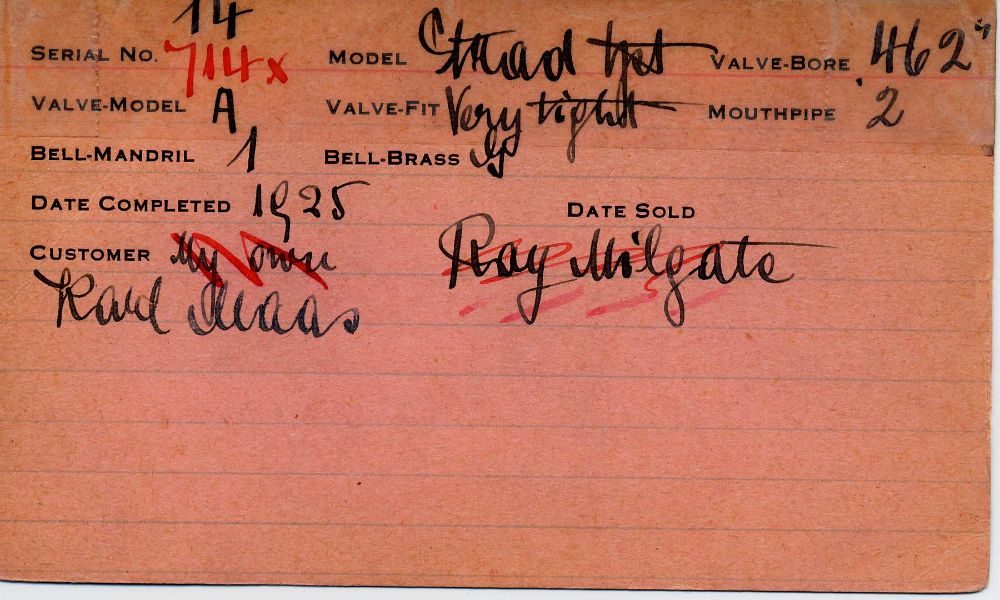 14
SERIAL NO. 714x MODEL Strad tpt VALVE-BORE .462"
VALVE-MODEL A VALVE-FIT Very tight MOUTHPIPE 2
BELL-MANDRIL 1 BELL-BRASS
DATE COMPLETED 1925 DATE SOLD
CUSTOMER My own Ray Milgate
Karl Maas